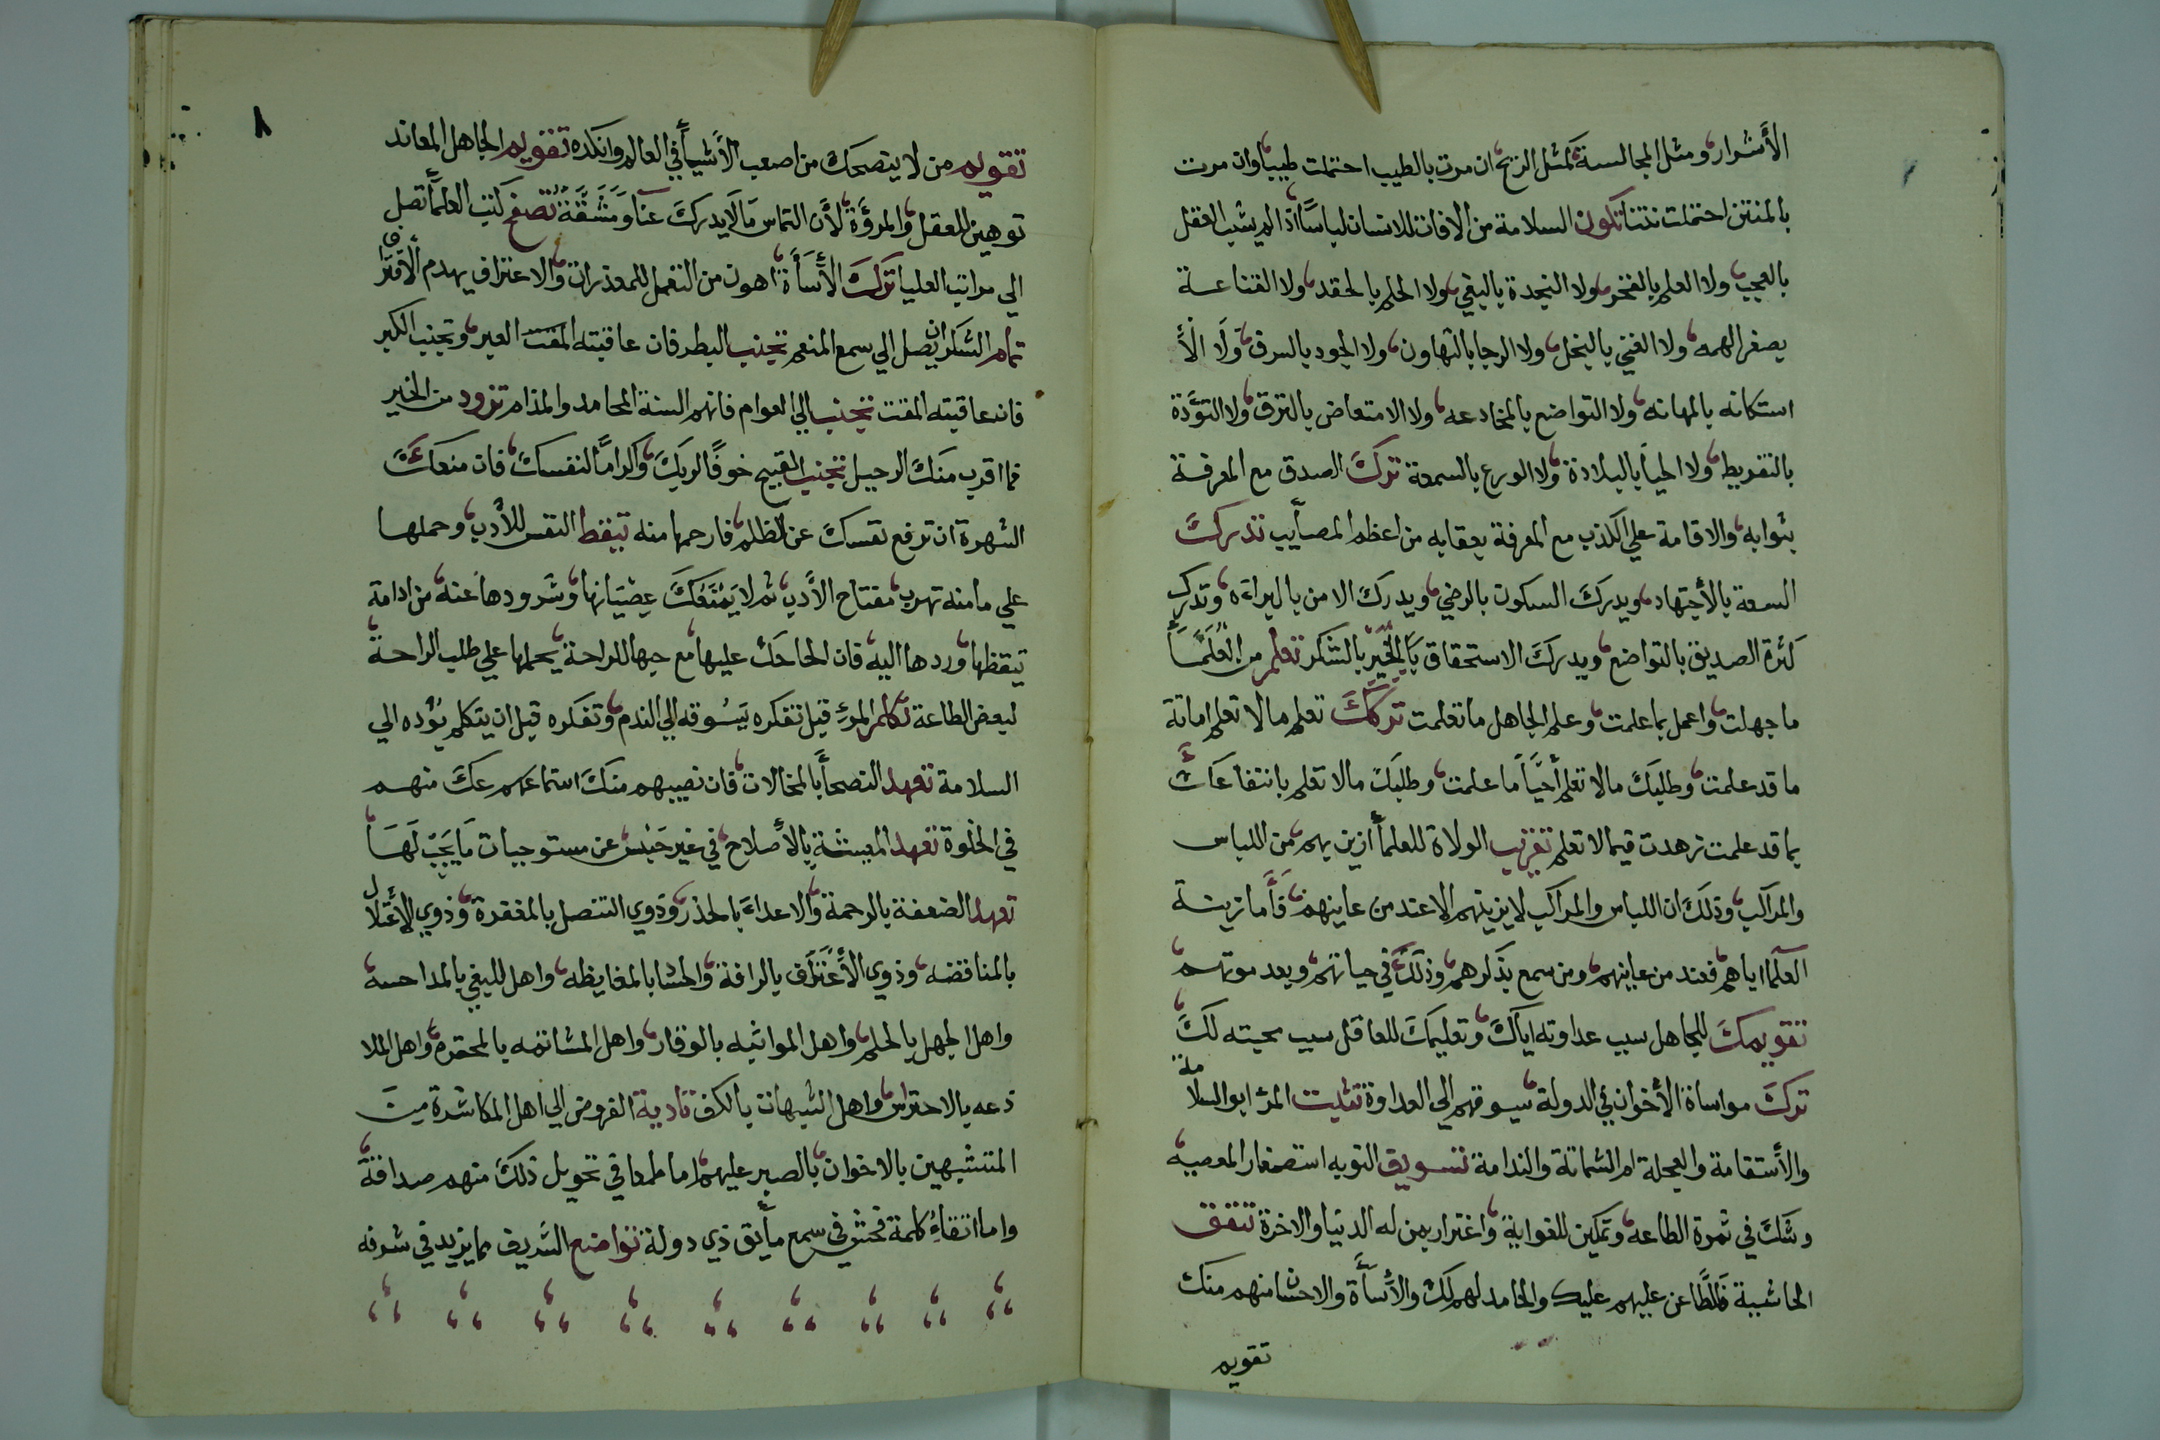 الأشرار ومثل المجالسة كمثل الريح ان مرت بالطيب احتملت طيبا وان مرت
بالمنتن احتملت نتنا تكون السلامة من الافات للانسان لباسًا اذا لم يشب العقل
بالعجب ولا العلم بالفخر ولا النجدة بالبغي ولا الحلم بالحقد ولا القناعة
بصغر الهمه ولا الغني بالبخل ولا الرجا بالتهاون ولا الجود بالسرف ولا الأ
استكانه بالمهانه ولا التواضع بالمخادعه ولا الامتعاض بالنزق ولا التؤدة
بالتفريط ولا الحيأ بالبلادة ولا الورع بالسمعة ترك الصدق مع المعرفة
بثوابه والاقامة علي الكذب مع المعرفة بعقابه من اعظم المصأيب تدرك
السعة بالأجتهاد ويدرك السكون بالرضي ويدرك الامن بالبراءه وتدرك
كثرة الصديق بالتواضع ويدرك الاستحقاق بالخير بالشكر تعلم من العلمأ
ما جهلت واعمل بما علمت وعلم الجاهل ما تعلمت تركك تعلم ما لا تعلم اماتة
ما قد علمت وطلبك ما لا تعلم أحيأ ما علمت وطلبك ما لا تعلم بانتفاعك
بما قد علمت زهدت فيما لا تعلم تقريب الولاة للعلمأ ازين بهم من اللباس
والمراكب وذلك ان اللباس والمراكب لا يزينهم الا عند من عاينهم فأما زينة
العلما اياهم فعند من عاينهم ومن سمع بذكرهم وذلك في حياتهم وبعد موتهم
تقويمك للجاهل سبب عداوته اياك وتعليمك للعاقل سبب محبته لك
ترك مواساة الأخوان في الدولة يسوقهم الي العداوة تثبت المرء ابو السلامة
والأستقامة والعجلة ام الشماتة والندامة تسويف التوبه استصغار المعصيه
وشك في ثمرة الطاعه وتمكين للغواية واغترار بمن له الدنيا والاخرة تتفق
الحاشية فالطاعن عليهم عليك والحامد لهم لك والأسأة والاحسان منهم منك
تقويم
٨
تقويم من لا ينصحك من اصعب الأشيأ في العالم وانكده تقويم الجاهل المعاند
توهين للعقل والمروَّة لأن التماس ما لا يدرك عنآ ومشقَّة تصفح كتب العلمأ تصل
الي مراتب العليا ترك الأسأة اهون من التعمل للمعذرات والاعتراف يهدم الأقترا
تمام الشكر ان يصل الي سمع المنعم تجنب البطر فان عاقبته المقت العير وتجنب الكبر
فان عاقبته المقت تجنب الي العوام فانهم السنة المحامد والمذام تزود من الخير
فما اقرب منك الرحيل تجنب القبيح خوفًا لربك واكرامًا لنفسك فان منعك
الشهوة ان ترفع نفسك عن الظلم فارحمها منه تيقظ النفس للأدب وحملها
علي ما منه تهرب مفتاح الأدب ثم لا يمنعك عصيانها وشرودها عنه من ادامة
تيقظها وردها اليه فان الحاحك عليها مع حبها للراحة يحملها علي طلب الراحة
لبعض الطاعة تكلم المرء قبل تفكره يسوقه الي الندم وتفكره قبل ان يتكلم يؤده الي
السلامة تعهد النصحأ بالمخالات فان نصيبهم منك استماعهم عنك منهم
في الخلوة تعهد المعيشة بالأصلاح في غير حبس عن مستوجبات ما يجب لها
تعهد الضعفة بالرحمة والاعداء بالحذر وذوي التنصل بالمغفرة وذوي الأعتلال
بالمناقضه وذوي الأعتراف بالرافة والحسّاد بالمغايظه واهل البغي بالمداحسه
واهل الجهل بالحلم واهل المواثبه بالوقار واهل المشاتمه بالمحقره واهل الملا
ذعه بالاحتراس واهل الشبهات بالكف تادية الفروض الي اهل المكاشرة من
المتشبهين بالاخوان بالصبر عليهم اما طمعا في تحويل ذلك منهم صداقة
واما اتقاء كلمة فحش في سمع مأيق ذي دولة تواضع الشريف مما يزيد في شرفه